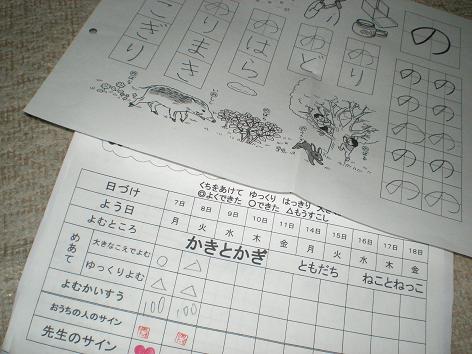 の
の の
の の
の の
の の
の の
のり
のど
のはら
のりまき
こぎり
くちをあけて ゆっくり はっきり 大き
◎よくできた ○できた △もうすこし
日づけ 7日 8日 9日 10日 11日 14日 15日 16日 17日 18日
よう日 月 火 水 木 金 月 火 水 木 金
よむところ かきとかぎ ともだち ねことねっこ
めあて
大きなこえでよむ ○ △
ゆっくりよむ △ △
よむかいすう 100 100
おうちの人のサイン
先生のサイン